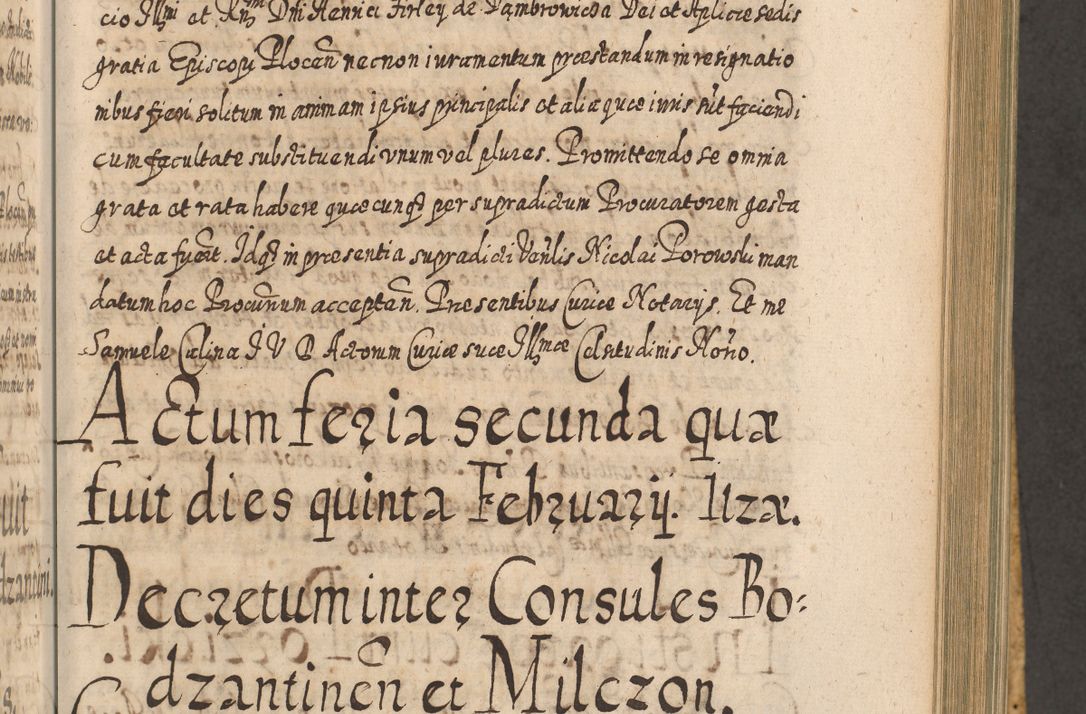 cio Illmi et Rndmi Dni Henrici Firley de Dambrowicza Dei et Aplicæ sedis
gratia Episcopi Plocen̄ necnon iuramentum præstandum in resignatio
nibus fieri solitum in animam ipsius principalis et alia quæ iuris sūt faciendi
cum facultate substituendi vnum vel plures. Promittendo se omnia
grata et rata habere quæcunq per supradictum Procuratorem gesta
et acta fuerit. Idq in præsentia supradicti Venlis Nicolai Porowski man
datum hoc Procurnum acceptan̄. Præsentibus Curiæ Notarijs. Et me
Samuele Calina I V D Actorum Curiæ suæ Illmæ Celsitudinis Notrio.
Actum feria secunda quæ
fuit dies quinta Februarij. Uzæ.
Decretum inter Consules Bo:
dzantinēn et Milczon.